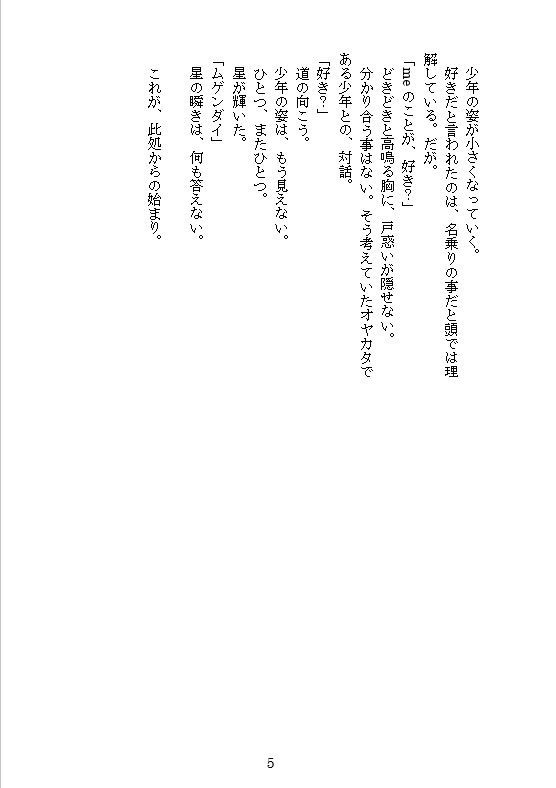 少年の姿が小さくなっていく。
好きだと言われたのは、名乗りの事だと頭では理
解している。だが。
「meのことが、好き？」
どきどきと高鳴る胸に、戸惑いが隠せない。
分かり合う事はない。そう考えていたオヤカタで
ある少年との、対話。
「好き？」
道の向こう。
少年の姿は、もう見えない。
ひとつ、またひとつ。
星が輝いた。
「ムゲンダイ」
星の瞬きは、何も答えない。
これが、此処からの始まり。
5